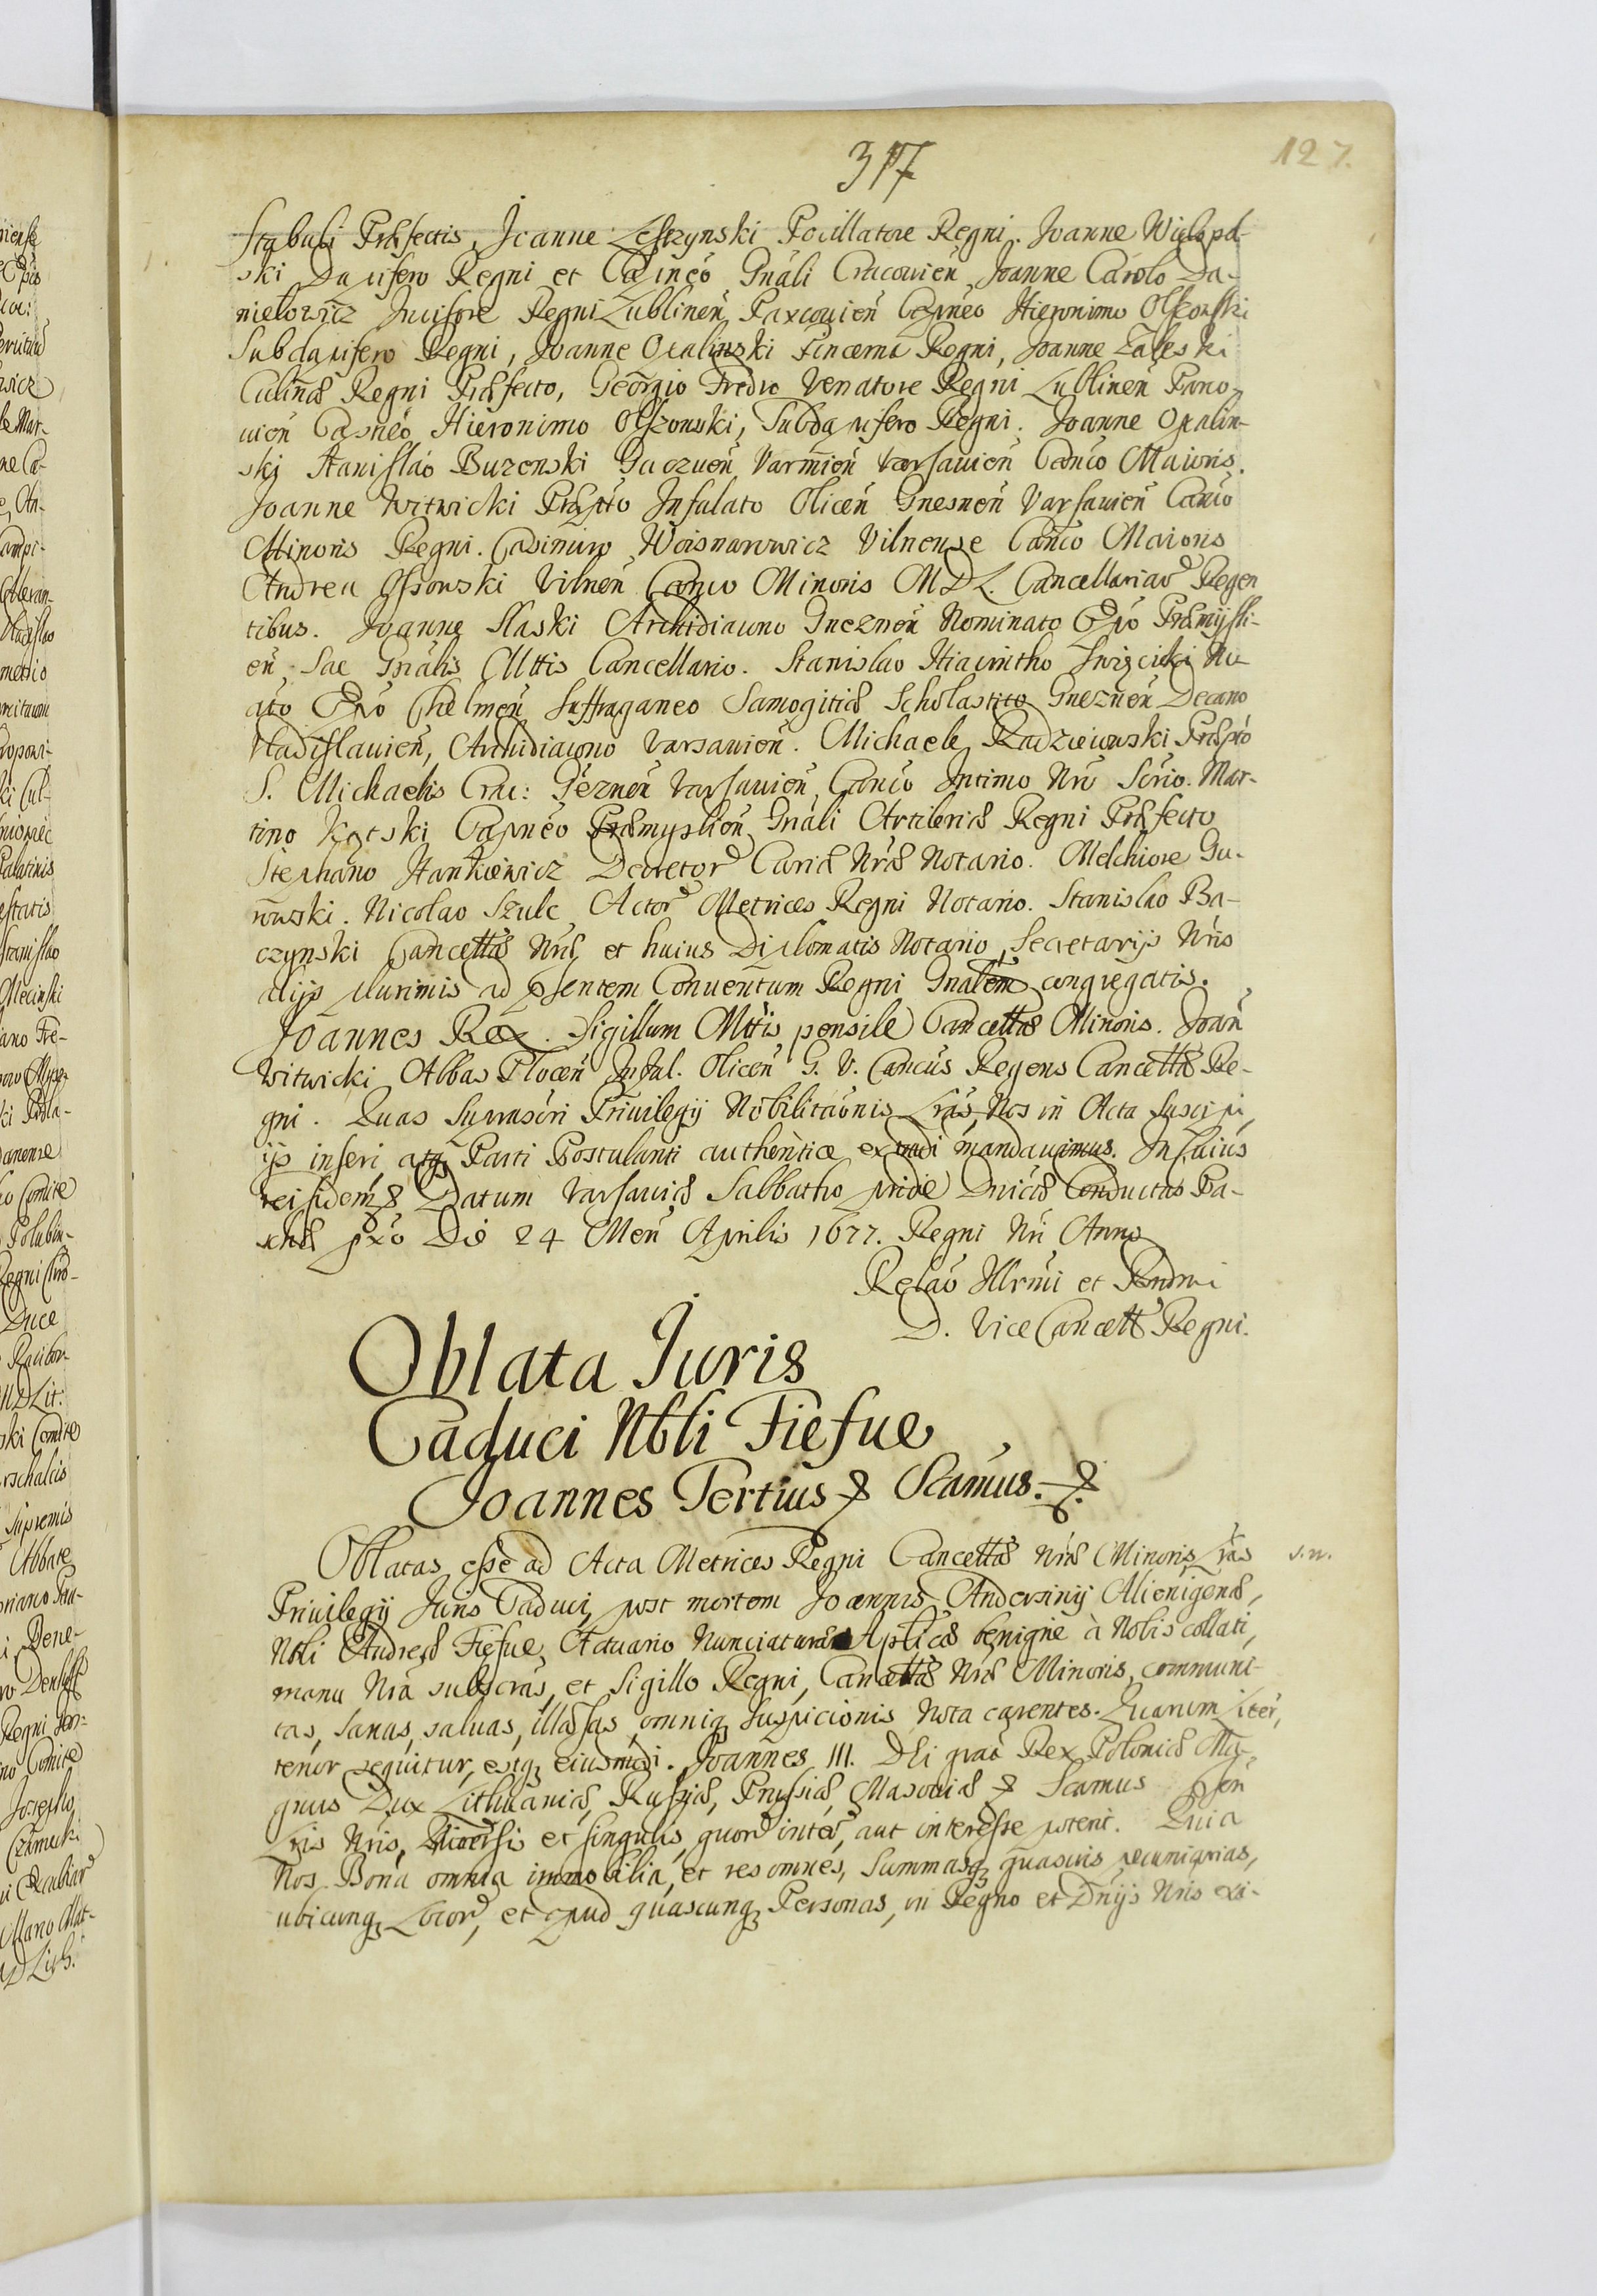 317
127.
Stabuli Præfectis, Joanne Leszzynski Pocillatore Regni. Joanne Wielopol-
ski Dapifero Regni et Capineo Gnāli Cracovien̄ Joanne Carolo Da-
nielowicz Incisore Regni Lublinen̄ Parcovien̄ Capneo Hieronimo Olszowski
Subdapifero Regni, Joanne Opalinski Pincerna Regni, Joanne Zaleski
Culinæ Regni Præfecto, Georgio Fredro Venatore Regni Lublinen̄ Pano-
uien̄ Capneo Hieronimo Olszonski, Subdapifero Regni. Joanne Opalin-
ski Stanislao Buzenski Varmien̄ Varsavien̄ Canco Maioris.
Joanne Witwicki Præpto Infulato Olicen̄ Gnesnen̄ Varsavien̄ Canco
Minoris Regni. Casimiro Woisnarowicz Vilnense Canco Maioris
Andrea Vilnen̄ Canco Minoris MDL. Cancellariar Regen
tibus. Joanne Slaski Archidiacono Gneznen̄ Nominato Epo Præmijsli-
en̄, Sac Gnālis Mttis Cancellario. Stanislao Hiacintho Swięcicki No-
ato Epo Chelmen̄ Suffraganeo Samogitiæ Scholastico Gneznen̄ Decano
Vladislavien̄, Archidiacono Varsavien̄. Michaele Radzieiowski Præpto
S. Michaelis Crac: Gneznen̄ Varsavien̄ Canco Intimo Nro Scrio. Mar-
tino Kątski Capneo Præmyslien̄ Gnāli Artileriæ Regni Præfecto
Stephano Hankiewicz Decretor Curiæ Nræ Notario. Melchiore Gu-
rowski. Nicolao Szulc Actor Metrices Regni Notario. Stanislao Ba-
czynski Cancellæ Nræ et huius Diplomatis Notario, Secretarijs Nris
alijs plurimis ad psentem Conventum Regni Gnalem congregatis.
Joannes Rex. Sigillum Mttis pensile Cancellæ Minoris. Joan
Witwicki Abbas Plocen̄ Inful. Olicen̄ G. V. Cancus Regens Cancellæ Re-
gni. Quas Suprascri Privilegij Nobilitaonis Lras, Nos in Acta suscipi,
ijs inseri, atq Parti Postulanti authentice extradi mandavimus. In cuius
rei fidem & Datum Varsaviæ Sabbatho pridie Dnicæ Conductus Pa-
schæ pxo Die 24 Men̄ Aprilis 1677. Regni Nri Anno
Relao Illrmi et Rndmi
D. Vice Cancell Regni.
Oblata Juris
Caduci Nbli Fiefue
Joannes Tertius & Scamus. &.
Oblatas esse ad Acta Metrices Regni Cancellæ Nræ Minoris Lras
s.n.
Privilegij Juris Caduci, post mortem Joannis Andersinij Alienigenæ,
Nbli Andreæ Fiefue, Actuario Nunciaturæ Aplicæ benigne à Nobis collati,
manu Nra subscras, et Sigillo Regni, Cancellæ Nræ Minoris, communi-
tas, sanas, salvas, illæsas, omniq Suspicionis Nota carentes. Quarum Liter,
tenor sequitur, estq eiusmodi. Joannes III. Dei graa Rex Poloniæ Ma-
gnus Dux Lithuaniæ, Russiæ, Prussiæ, Masoviæ & Scamus psen̄
Lris Nris, Universis et singulis, quor intèr, aut interesse poterit. Quia
Nos Bona omnia immobilia, et res omnes, Summasq quasvis pecuniarias,
ubicunq Locor, et apud quascunq Personas, in Regno et Dnijs Nris exi-